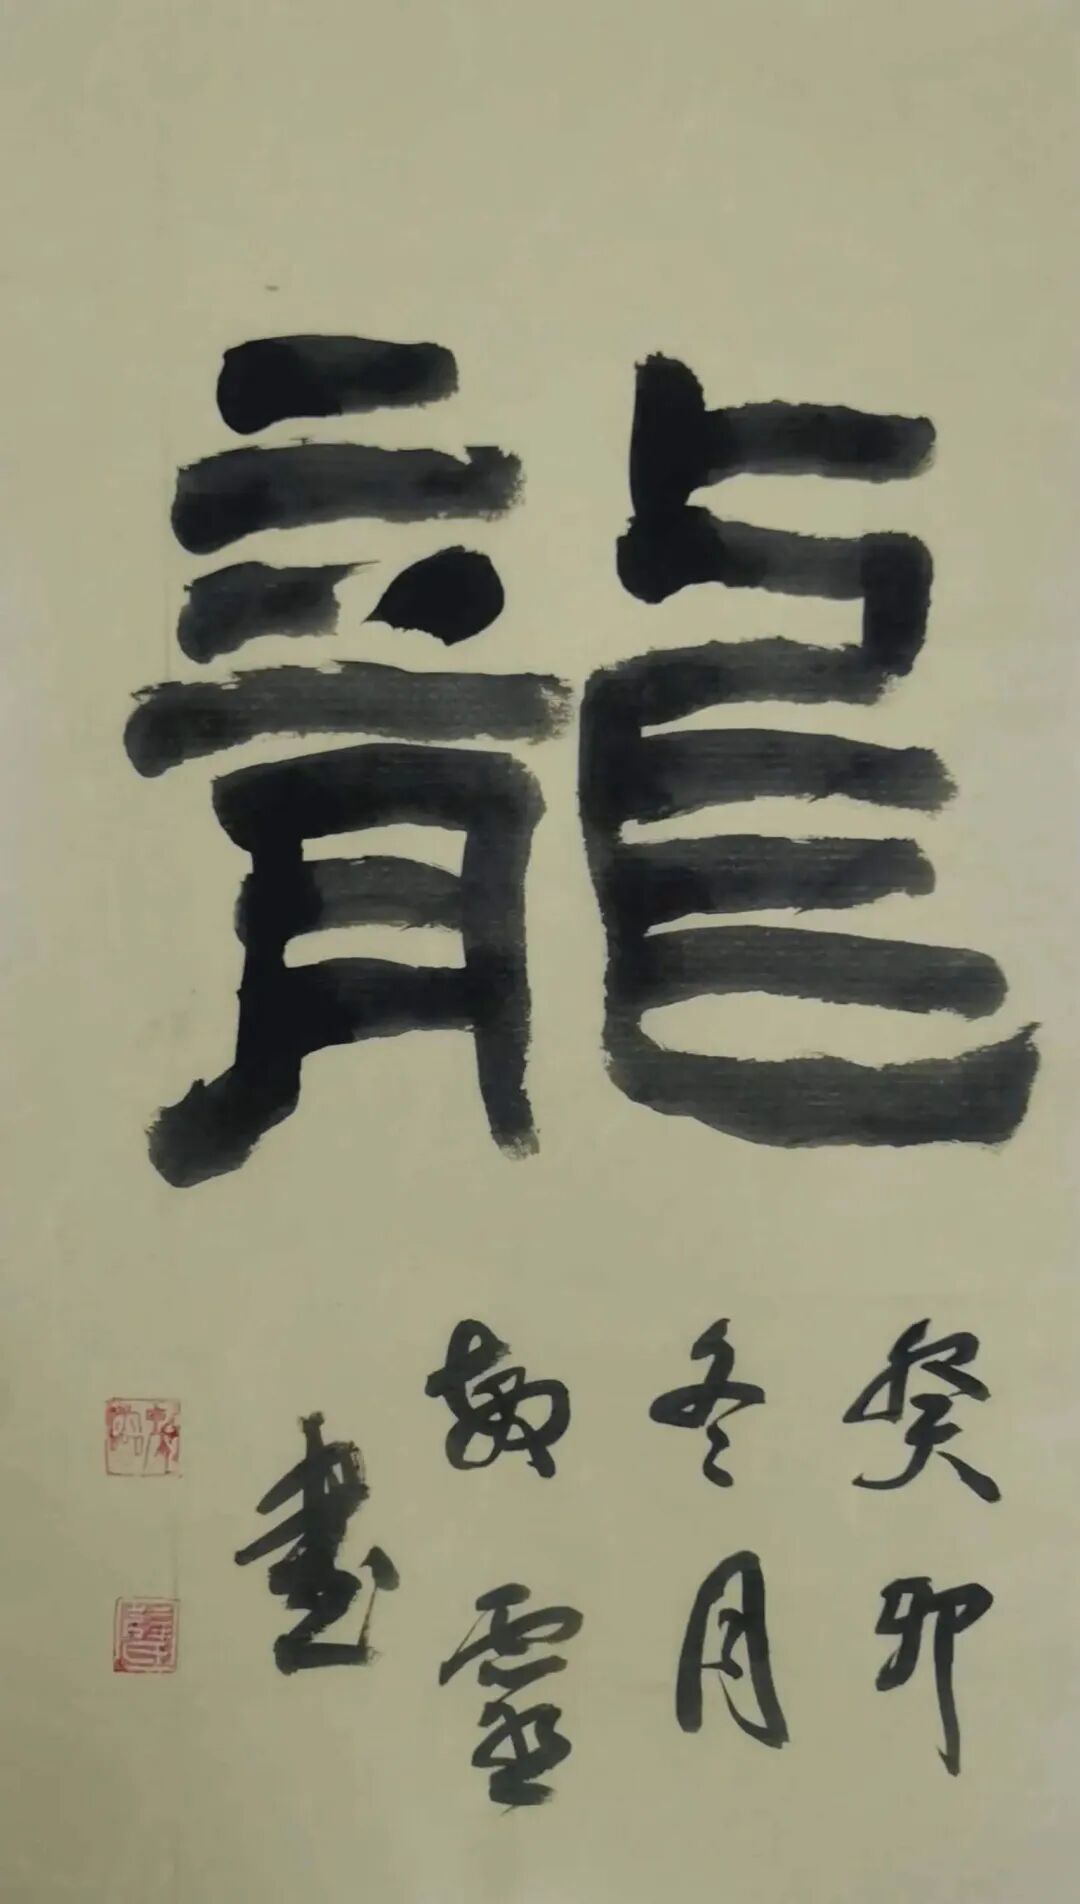 龍
癸卯
冬月
敏靈
書